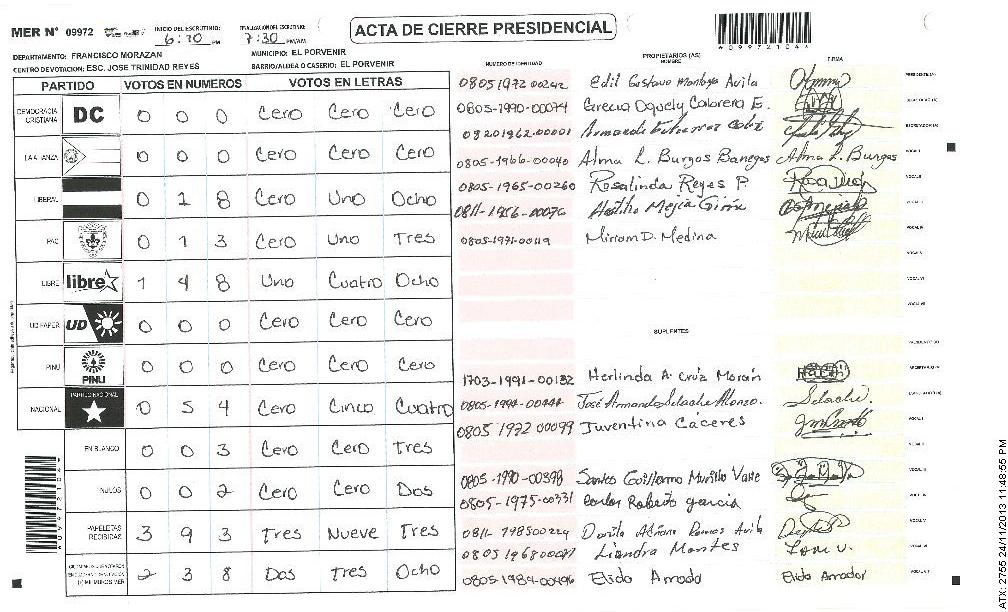 MER N° 09972 INICIO DEL ESCRUTINIO: 6:10 PM FINALIZACION DEL ESCRUTINIO: 7:30 PM/AM
ACTA DE CIERRE PRESIDENCIAL
DEPARTAMENTO: FRANCISCO MORAZAN MUNICIPIO: EL PORVENIR
CENTRO DEVOTACION: ESC. JOSE TRINIDAD REYES BARRIO/ALDEA O CASERIO: EL PORVENIR
PARTIDO VOTOS EN NUMEROS VOTOS EN LETRAS
DEMOCRACIA CRISTIANA DC 0 0 0 Cero Cero Cero
LA ALIANZA 0 0 0 Cero Cero Cero
LIBERAL 0 1 8 Cero Uno Ocho
PAC 0 1 3 Cero Uno Tres
LIBRE libre 1 4 8 Uno Cuatro Ocho
UD FAPER UD 0 0 0 Cero Cero Cero
PINU PINU 0 0 0 Cero Cero Cero
NACIONAL PARTIDO NACIONAL 0 5 4 Cero Cinco Cuatro
EN BLANCO 0 0 3 Cero Cero Tres
NULOS 0 0 2 Cero Cero Dos
PAPELETAS RECIBIDAS 3 9 3 Tres Nueve Tres
2 3 8 Dos Tres Ocho
NUMERO DE IDENTIDAD PROPIETARIOS (AS) NOMBRE FIRMA
0805197200242 Edil Gustavo Montoya Avila
0805-1990-00074 Grecia Oquely Cabrera E.
08201962.00001
0805-1966-00040 Alma L. Burgos Banegas Alma L. Burgos
0805-1965-00260 Rosalinda Reyes P.
0811-1956-00076 Mejia Girón
0805-1971-00119 Miriam D. Medina
SUPLENTES
1703-1991-00132 Herlinda A. Cruz Morán
José Armando Selache Alonzo. Selache.
0805 1972 00099 Juventina Cáceres
0805-1990-00398 Santos Guillermo Murillo Valle
0805-1975-00331 Carlos Roberto garcia
Avila
Liandra Montes
Elido Amador Elido Amador
A09972104A
ATX: 2755 24/11/2013 11:48:55 PM